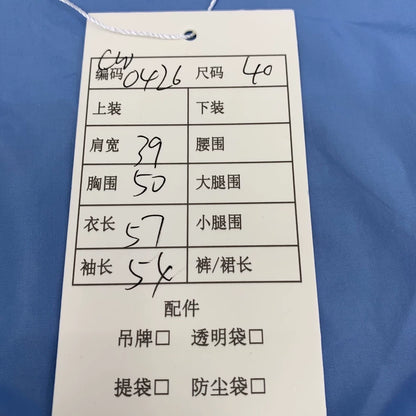 CW
编码 0426 尺码 40
上装 下装
肩宽 39 腰围
胸围 50 大腿围
衣长 57 小腿围
袖长 54 裤/裙长
配件
吊牌□ 透明袋□
提袋□ 防尘袋□